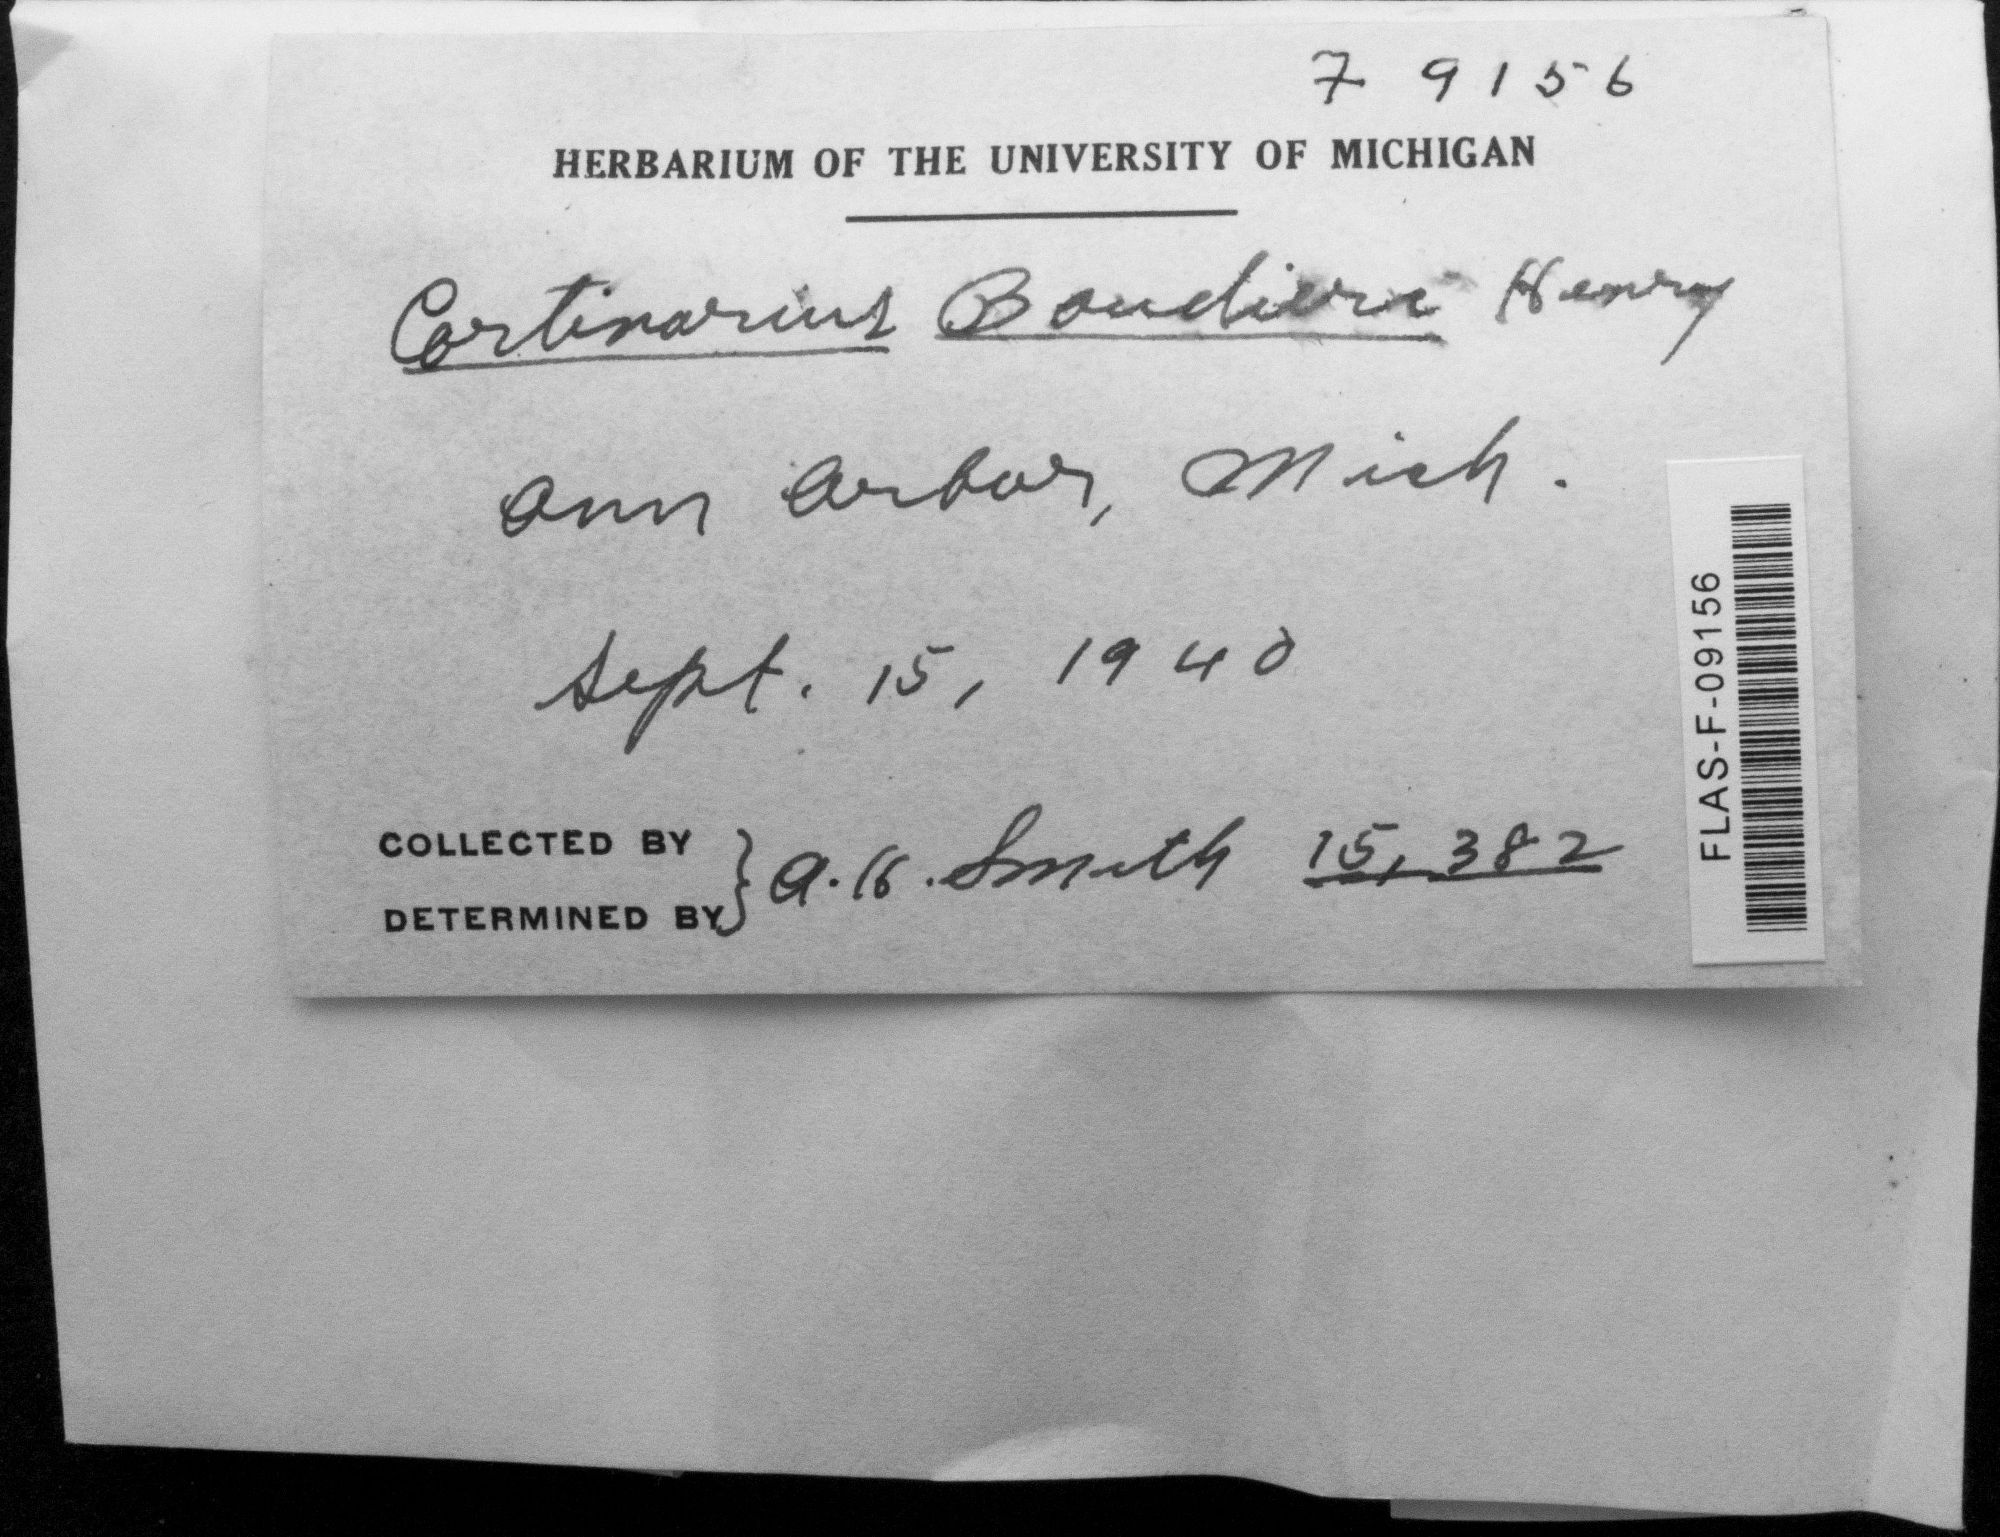 F 9156
HERBARIUM OF THE UNIVERSITY OF MICHIGAN
Cortinarius Boudieri Henry
Ann Arbor, Mich.
Sept. 15, 1940
COLLECTED BY
DETERMINED BY } A.H. Smith 15,382
FLAS-F-09156